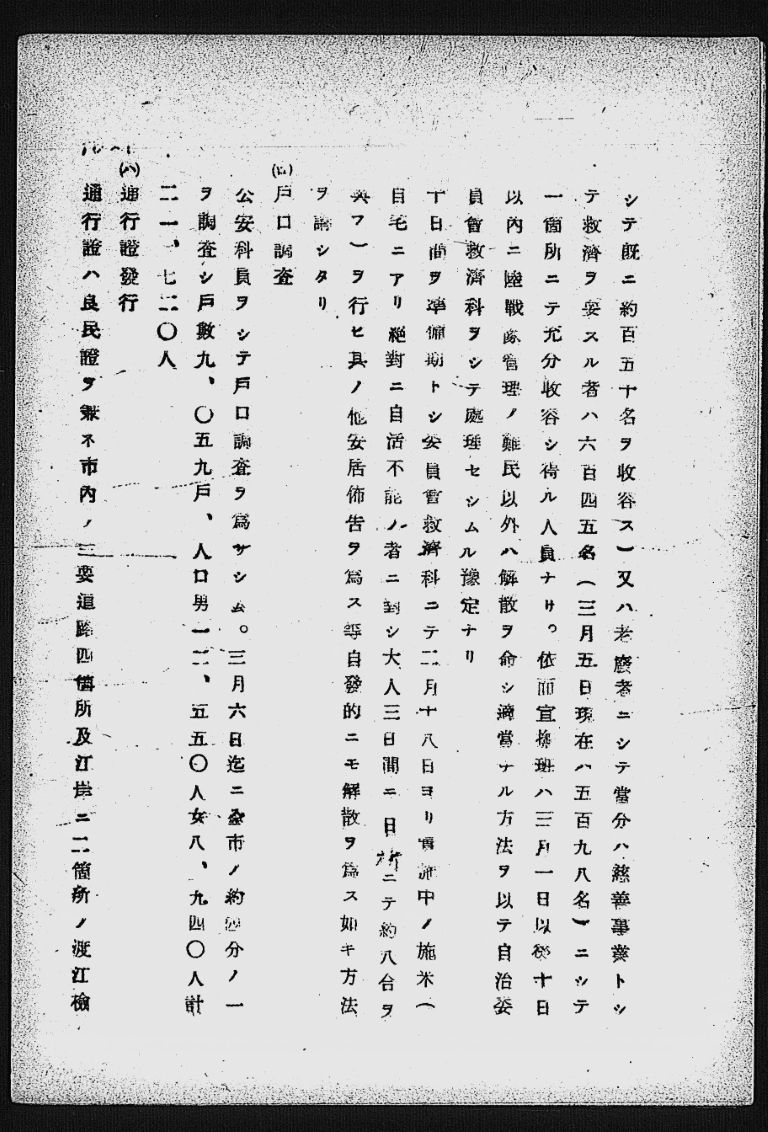 シテ既ニ約百五十名ヲ收容ス)又ハ老廢者ニシテ當分ハ慈善事業トシ
テ救濟ヲ要スル者ハ六百四五名(三月五日現在ハ五百九八名)ニシテ
一箇所ニテ充分收容シ得ル人員ナリ。依而宣撫班ハ三月一日以後十日
以內ニ陸戰隊管理ノ難民以外ハ解散ヲ命シ適當ナル方法ヲ以テ自治委
員會救濟科ヲシテ處理セシムル豫定ナリ
十日間ヲ準備期トシ委員會救濟科ニテ二月十八日ヨリ實施中ノ施米(
自宅ニアリ絕對ニ自活不能ノ者ニ對シ大人三日間ニ日析ニテ約八合ヲ
與フ)ヲ行ヒ其ノ他安居佈告ヲ爲ス等自發的ニモ解散ヲ爲ス如キ方法
ヲ講シタリ
(ロ)戶口調查
公安科員ヲシテ戶口調查ヲ爲サシム。三月六日迄ニ全市ノ約四分ノ一
ヲ調查シ戶數九、〇五九戶、人口男一二、五五〇人女八、九四〇人計
二一、七二〇人
(ハ)通行證發行
通行證ハ良民證ヲ兼ネ市內ノ三要道路四個所及江岸ニ二箇所ノ渡江檢